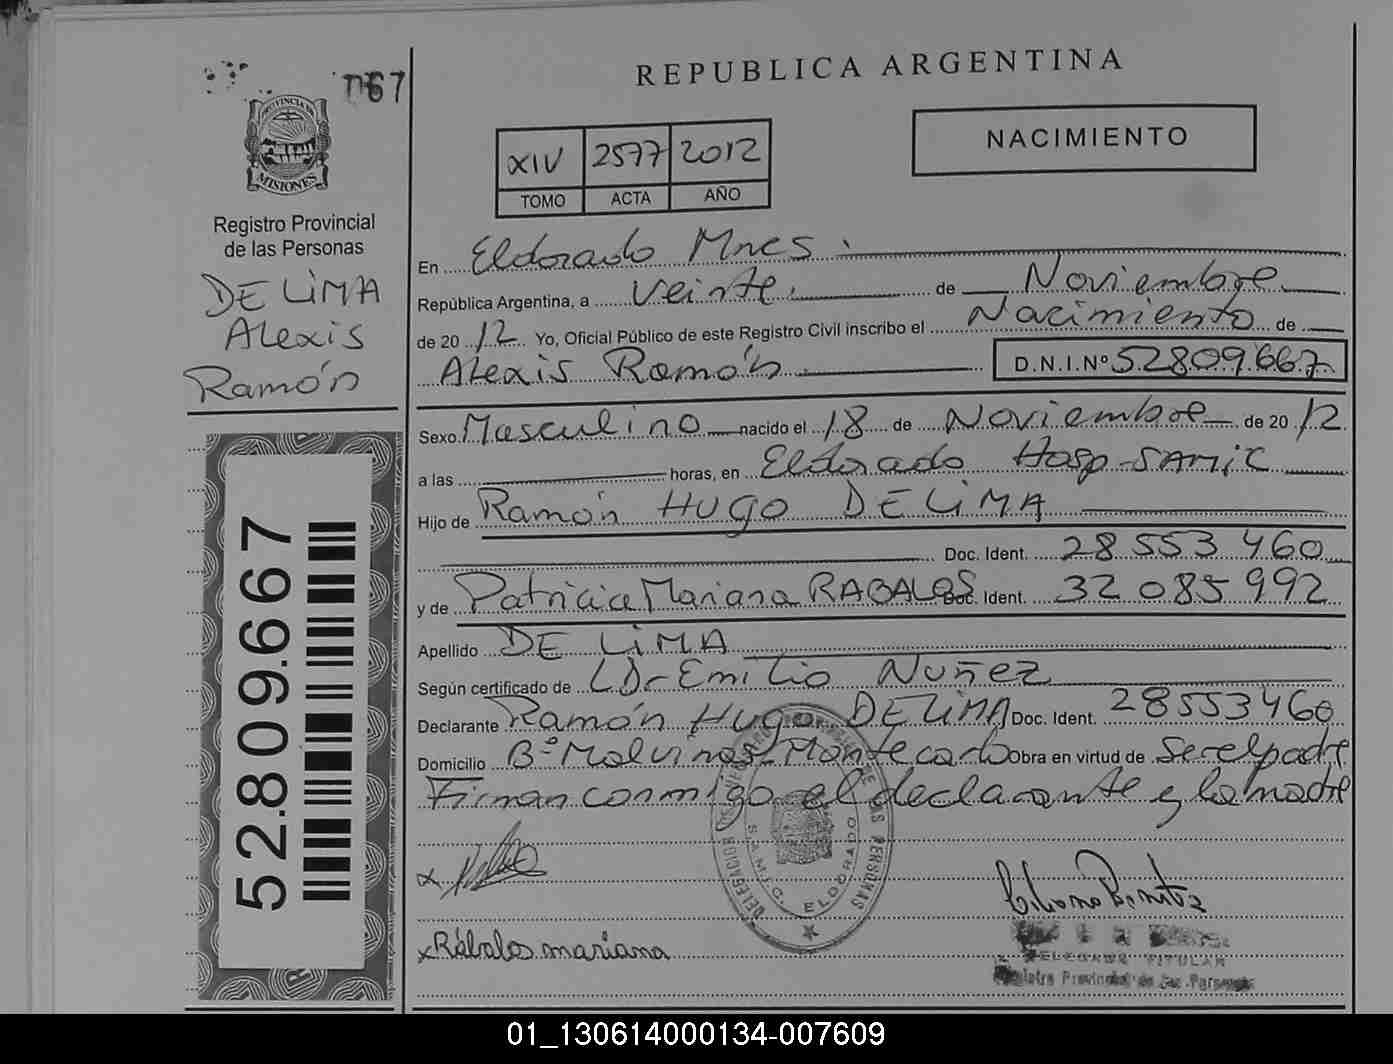 067
PROVINCIA DE
MISIONES
Registro Provincial
de las Personas
DE LIMA
Alexis
Ramón
52.809.667
REPUBLICA ARGENTINA
NACIMIENTO
XIV 2577 2012
TOMO ACTA AÑO
En Eldorado Mnes.
República Argentina, a veinte. de Noviembre
de 2012 Yo, Oficial Público de este Registro Civil inscribo el Nacimiento de
Alexis Ramón. D.N.I.Nº 52809.667.
Sexo Masculino nacido el 18 de Noviembre de 2012
a las horas, en Eldorado Hosp-SAMIC
Hijo de Ramón HUGO DE LIMA
Doc. Ident. 28 553 460
y de Patricia Mariana RABALOS Doc. Ident. 32 085 992
Apellido DE LIMA
Según certificado de Dr Emilio Nuñez
Declarante Ramón Hugo DE LIMA Doc. Ident. 28553460
Domicilio Bº Malvinas Montecarlo Obra en virtud de ser el padre
Firman conmigo el declarante y la madre
S.A.M.I.C. ELDORADO
DE LAS PERSONAS
x
x Rábalos mariana
DELEGADA TITULAR
Registro Provincial de las Personas
01_130614000134-007609